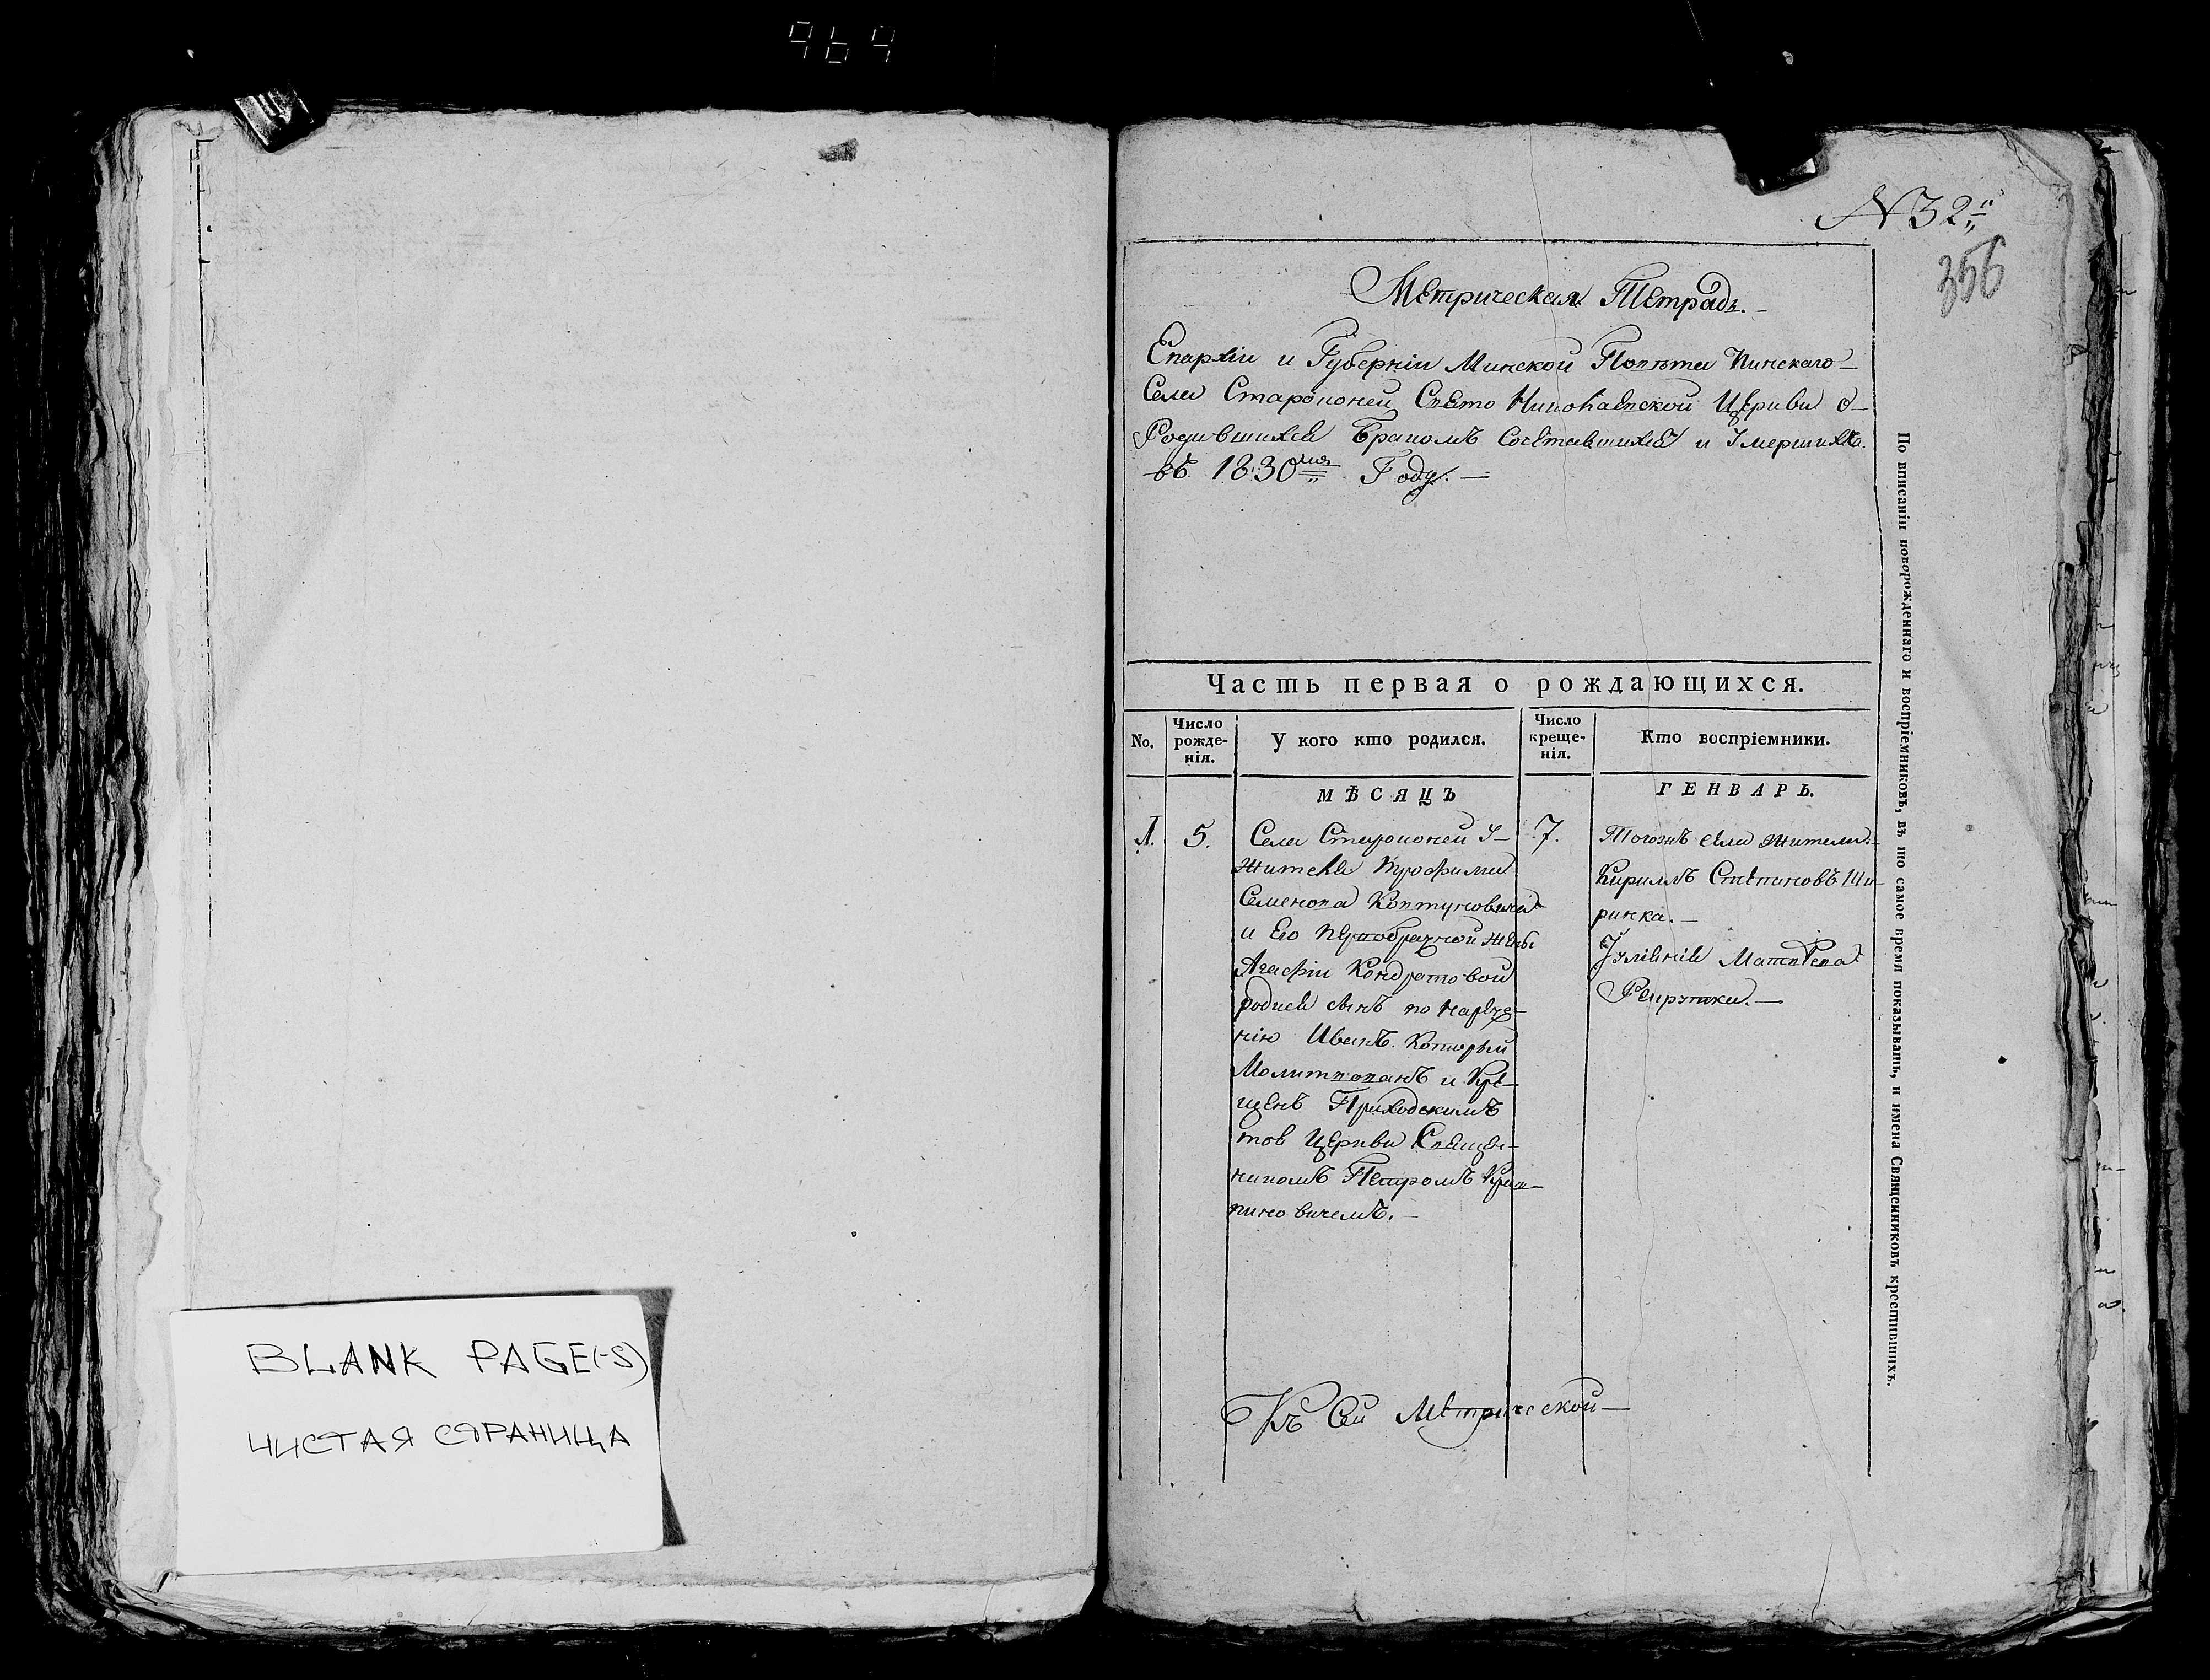 464
BLANK PAGE(-S)
ЧИСТАЯ СТРАНИЦА
N 32
356
Метрическая Тетрадь.
Епархіи и Губерніи Минской Повѣта Пинскаго
Села Староконей Свято Николаевской Церкви о
Родившихся Бракомъ Сочетавшихся и Умершихъ.
въ 1830 Году.
Часть первая о рождающихся.
No.
Число рожде-
нія.
У кого кто родился.
Число
креще-
нія.
Кто воспріемники.
МѢСЯЦЪ
ГЕНВАРЬ.
1. 5.
Села Староконей У
жителя Трофима
Семенова Ковтуновича
и Его первобрачной жены
Агафіи Кондратовой
родися сынъ по нарѣче-
нію Иванъ. Который
Молитвованъ и Кре-
щенъ Приходскимъ
тоя Церкви Священ-
никомъ Петромъ
7.
Тогожъ села жители.
Кирилъ Степановъ Ши-
ринка.
Іуліанія Матвѣева
Къ Сей Метрической
По вписаніи новорожденнаго и воспріемниковъ, въ то самое время показывать, и имена Священниковъ крестившихъ.